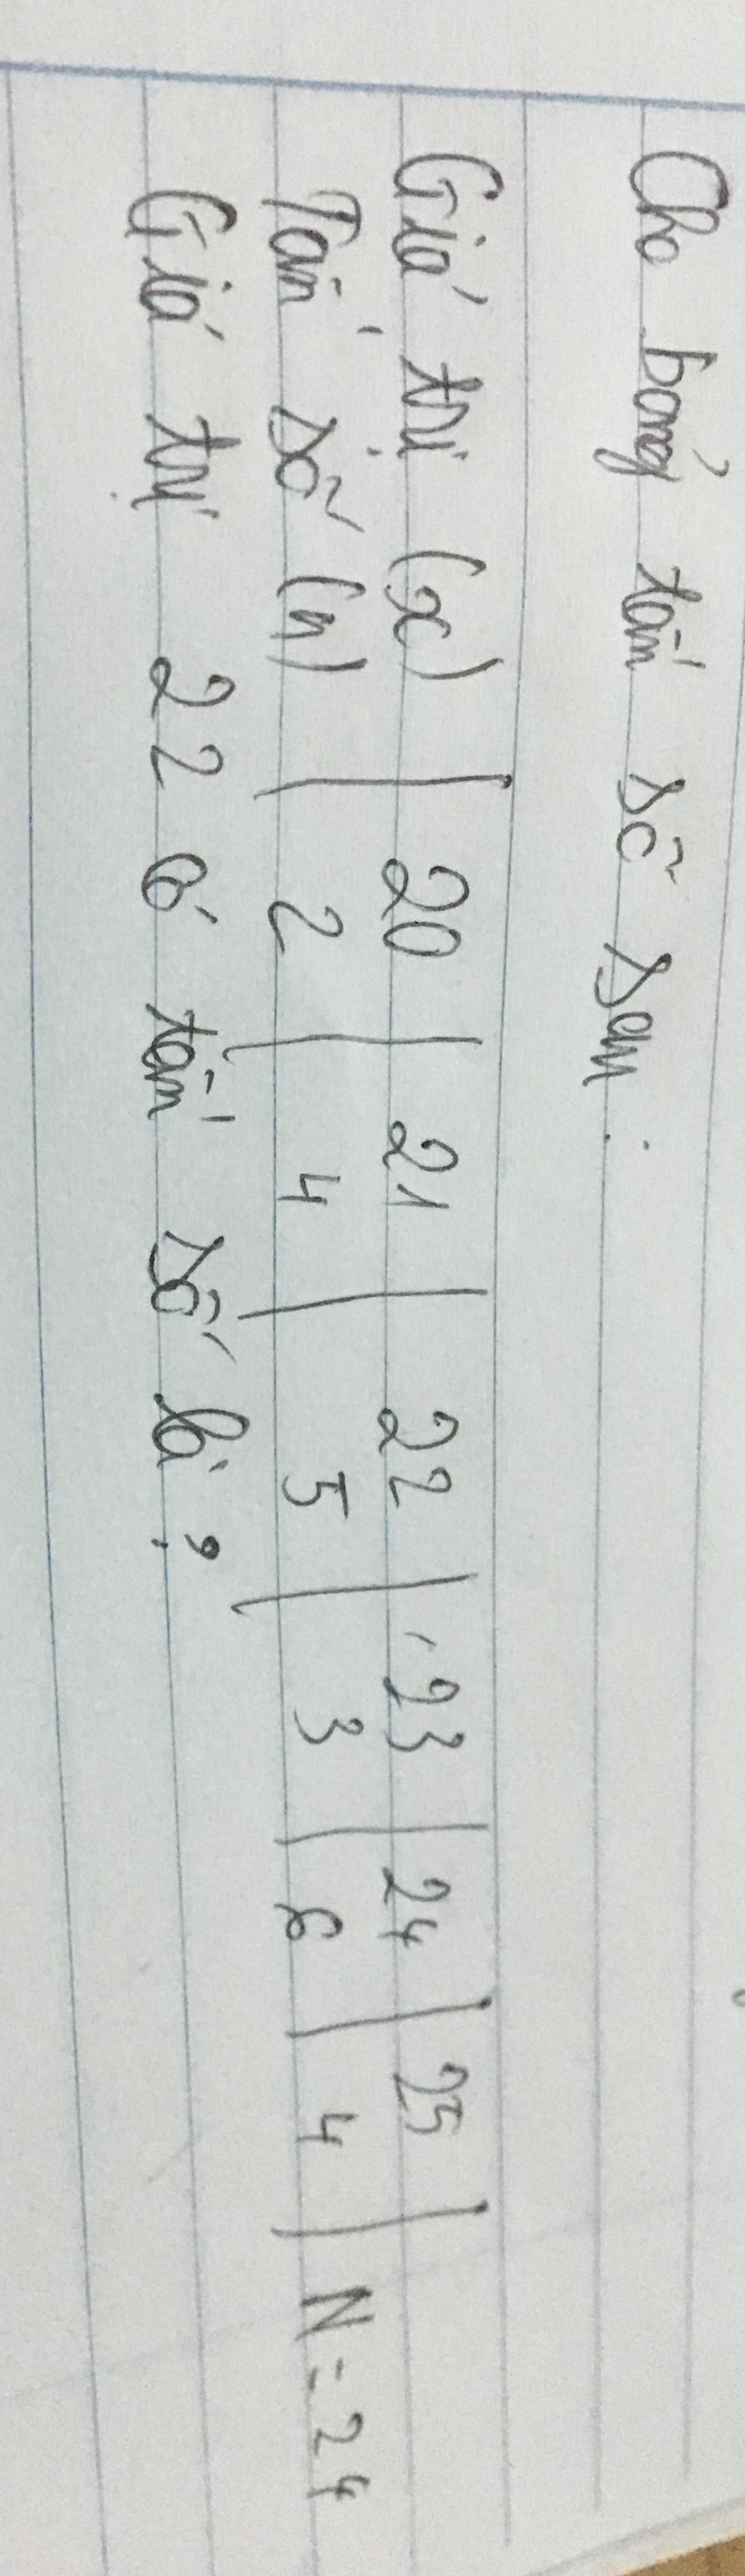 Cho bảng tần số sau:
Giá trị (x) | 20 | 21 | 22 | 23 | 24 | 25 |
Tần số (n) | 2 | 4 | 5 | 3 | 6 | 4 | N = 24
Giá trị 22 có tần số là?